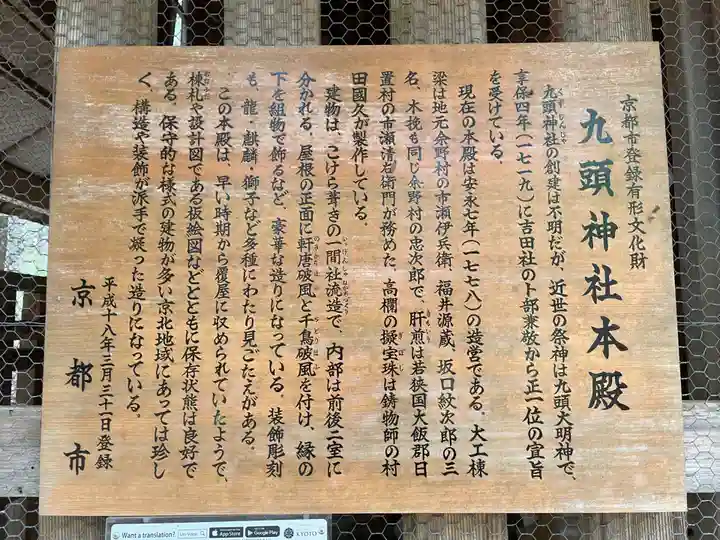 京都市登録有形文化財
九頭神社本殿
くずじんじゃ
九頭神社の創建は不明だが、近世の祭神は九頭大明神で、
享保四年(一七一九)に吉田社の卜部兼敬から正一位の宣旨
を受けている。
現在の本殿は安永七年(一七七八)の造営である。大工棟
梁は地元余野村の市瀬伊兵衛、福井源蔵、坂口紋次郎の三
きもいり
名、木挽も同じ余野村の忠次郎で、肝煎は若狭国大飯郡日
ぎぼし
置村の市瀬清右衛門が務めた。高欄の擬宝珠は鋳物師の村
田國久が製作している。
いっけんしゃながれづくり
建物は、こけら葺きの一間社流造で、内部は前後二室に
のきからはふ ちどりはふ
分かれる。屋根の正面に軒唐破風と千鳥破風を付け、縁の
下を組物で飾るなど、豪華な造りになっている。装飾彫刻
も、龍・麒麟・獅子など多種にわたり見ごたえがある。
この本殿は、早い時期から覆屋に収められていたようで、
棟札や設計図である板絵図などとともに保存状態は良好で
ある。保守的な様式の建物が多い京北地域にあっては珍し
く、構造や装飾が派手で凝った造りになっている。
平成十八年三月三十一日登録
京都市
Want a translation?
App Store
Google Play
KYOTO